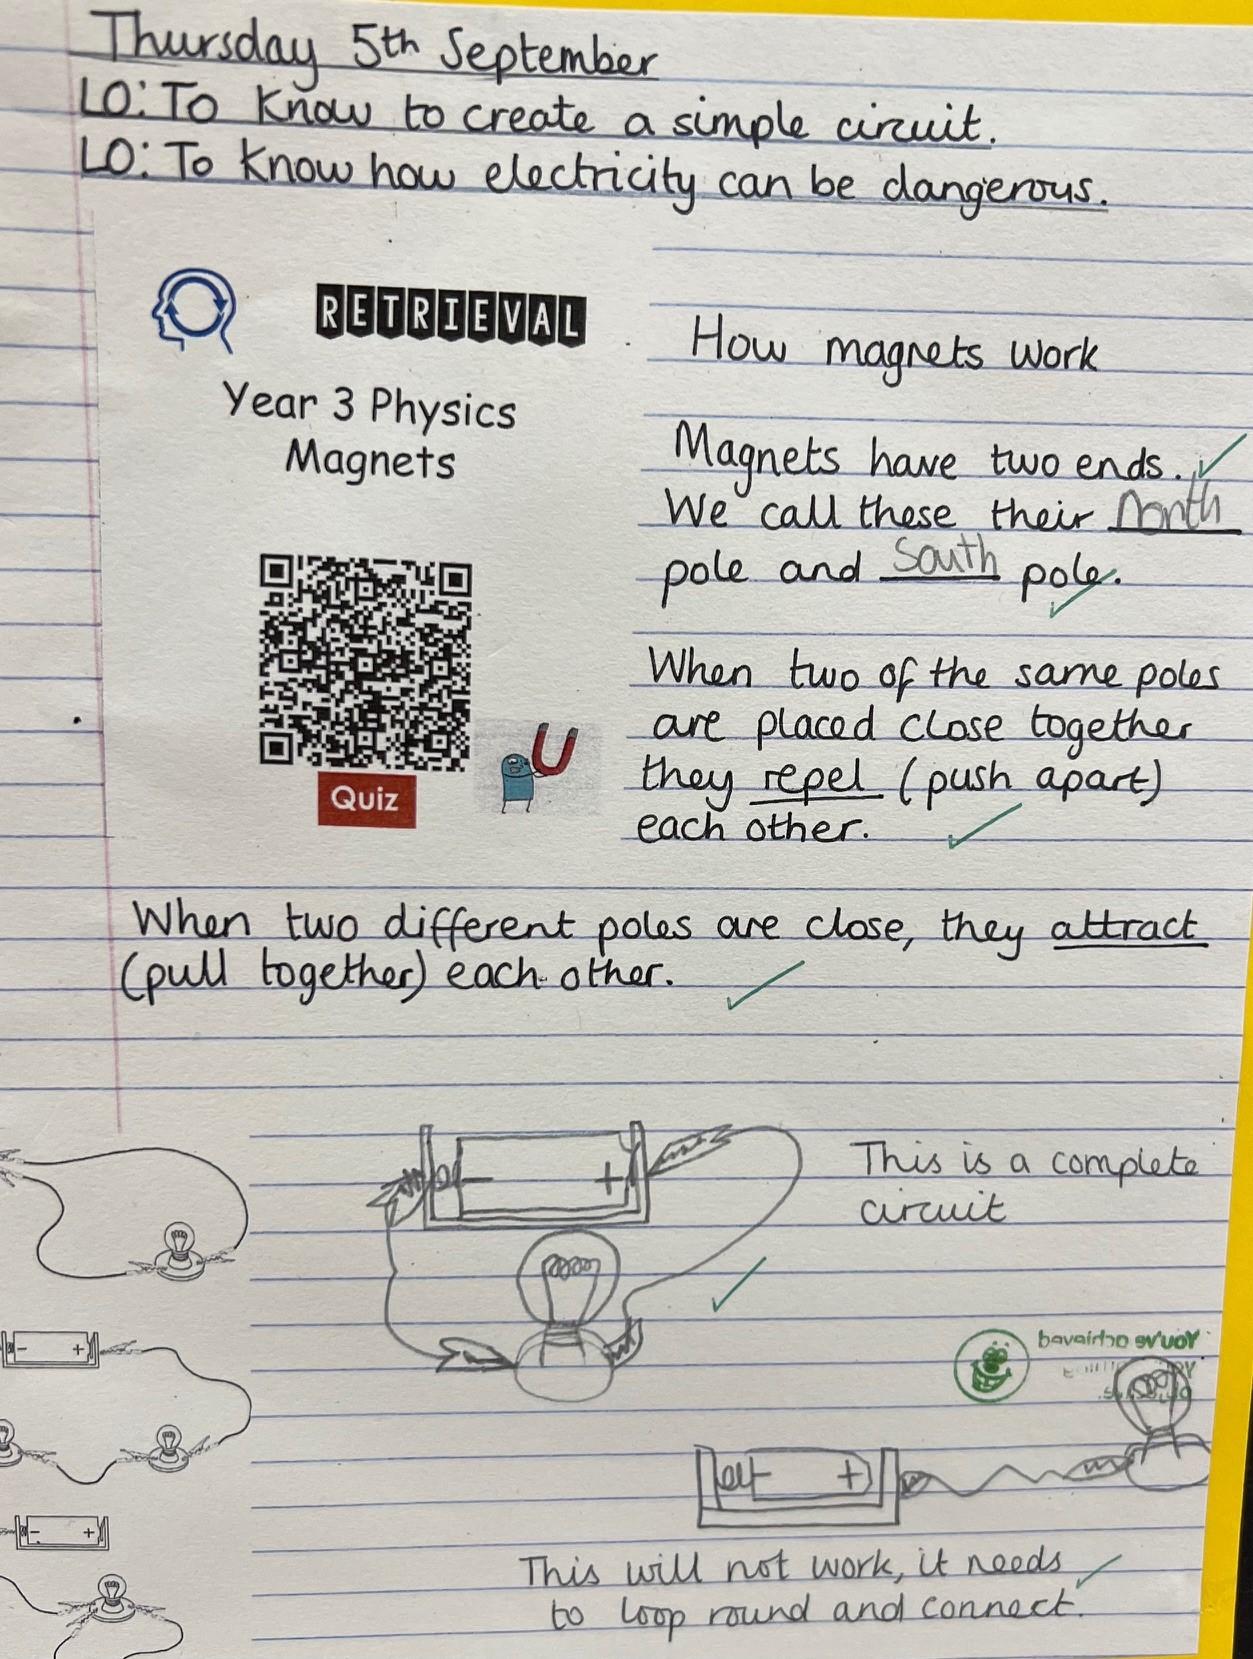 Thursday 5th September
LO: To know to create a simple circuit.
LO: To know how electricity can be dangerous.
RETRIEVAL
Year 3 Physics
Magnets
Quiz
How magnets work
Magnets have two ends.
We call these their north
pole and South pole.
When two of the same poles
are placed close together
they repel (push apart)
each other.
When two different poles are close, they attract
(pull together) each other.
- +
This is a complete
circuit
You've achieved
- +
- +
- +
This will not work, it needs
to loop round and connect.